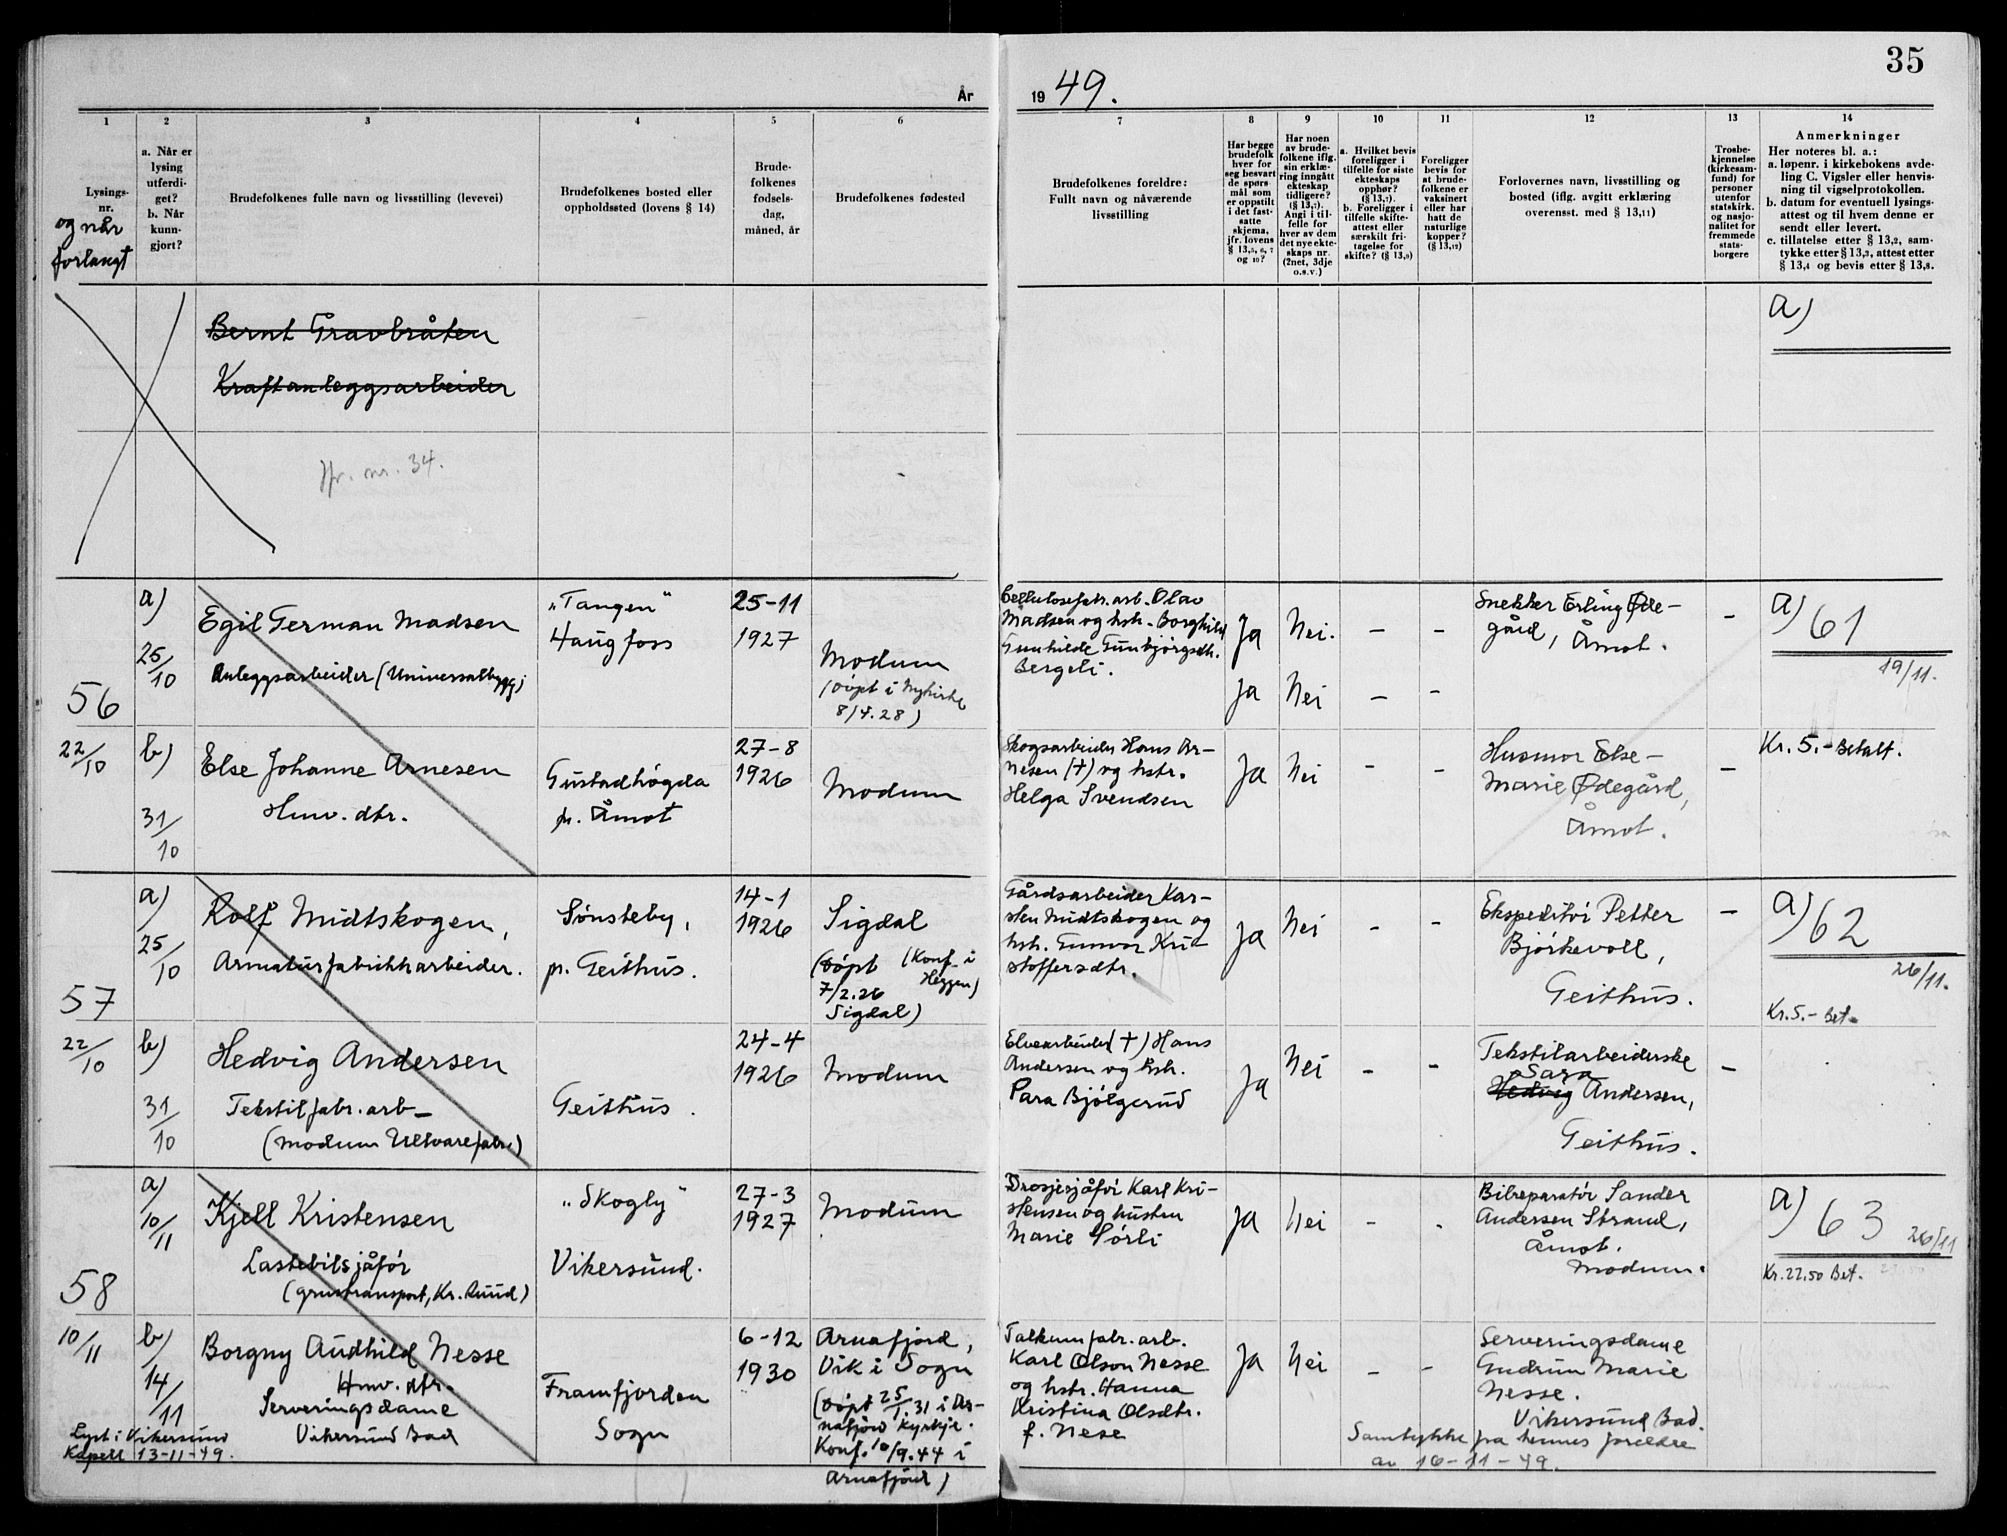 35
År
19 49.
1
2
3
4
5
6
7
8
9
10
11
12
13
14
Lysings-
nr.
og når
forlangt
a. Når er
lysing
utferdi-
get?
b. Når
kunn-
gjort?
Brudefolkenes fulle navn og livsstilling (levevei)
Brudefolkenes bosted eller
oppholdssted (lovens § 14)
Brude-
folkenes
fødsels-
dag,
måned, år
Brudefolkenes fødested
Brudefolkenes foreldre:
Fullt navn og nåværende
livsstilling
Har begge
brudefolk
hver for
seg besvart
de spørs-
mål som
er oppstilt
i det fast-
satte
skjema,
jfr. lovens
§ 13,5, 6, 7
og 10?
Har noen
av brude-
folkene iflg.
sin erklæ-
ring inngått
ekteskap
tidligere?
(§ 13,7).
Angi i til-
felle for
hver av dem
det nye ekte-
skaps nr.
(2net, 3dje
o.s.v.)
a. Hvilket bevis
foreligger i
tilfelle for siste
ekteskaps
opphør?
(§ 13,7).
b. Foreligger i
tilfelle skifte-
attest eller
særskilt fri-
tagelse for
skifte? (§ 13,9)
Foreligger
bevis for
at brude-
folkene er
vaksinert
eller har
hatt de
naturlige
kopper?
(§ 13,12)
Forlovernes navn, livsstilling og
bosted (iflg. avgitt erklæring
overensst. med § 13,11)
Trosbe-
kjennelse
(kirkesam-
fund) for
personer
utenfor
statskirk.
og nasjo-
nalitet for
fremmede
stats-
borgere
Anmerkninger
Her noteres bl. a.:
a. løpenr. i kirkebokens avde-
ling C. Vigsler eller henvis-
ning til vigselprotokollen.
b. datum for eventuell lysings-
attest og til hvem denne er
sendt eller levert.
c. tillatelse etter § 13,2, sam-
tykke etter § 13,3, attest etter
§ 13,4 og bevis etter § 13,8.
Bernt Gravbråten
Kraftanleggsarbeider
Jfr. nr. 34.
a)
56
22/10
a)
25/10
Egil German Madsen
Anleggsarbeider (Universalbygg)
"Tangen"
Haugfoss
25-11
1927
Modum
(døpt i Nykirke
8/4.28)
Cellulosefabr.arb. Olav
Madsen og hstr. Borghild
Gunhilde Gunbjørgsdtr.
Bergeli.
Ja
Nei.
-
-
Ja
Nei
-
-
Snekker Erling Øde-
gård, Åmot.
-
a) 61
19/11.
b)
31/10
Else Johanne Arnesen
Hmv. dtr.
Gustadhøgda
pr. Åmot
27-8
1926
Modum
Skogsarbeider Hans Ar-
nesen (+) og hstr.
Helga Svendsen
Ja
Nei
-
-
Husmor Else-
Marie Ødegård,
Åmot.
-
Kr. 5.- Betalt.
57
22/10
a)
25/10
Rolf Midtskogen,
Armaturfabrikkarbeider.
Sønsteby,
pr. Geithus.
14-1
1926
Sigdal
(døpt (Konf. i
7/2.26 Heggen)
Sigdal)
Gårdsarbeider Kar-
sten Midtskogen og
hstr. Gunvor Kri-
stoffersdtr.
Ja
Nei
-
-
Ekspeditør Petter
Bjørkevoll,
Geithus.
-
a) 62
26/11.
Kr. 5.- Bet.
b)
31/10
Hedvig Andersen
Tekstilfabr.arb-
(Modum Ullvarefabr.)
Geithus.
24-4
1926
Modum
Elvearbeider (+) Hans
Andersen og hstr.
Para Bjølgerud
Ja
Nei
-
-
Tekstilarbeiderske
Sara
Hedvig Andersen,
Geithus.
-
58
10/11
a)
10/11
Kjell Kristensen
Lastebilsjåfør
(grustransport, Kr. Ruud)
"Skogly"
Vikersund.
27-3
1927
Modum
Drosjesjåfør Karl Kri-
stensen og hustru
Marie Sørli
Ja
Nei
-
-
Bilreparatør Sander
Andersen Strand,
Åmot.
Modum.
a) 63 26/11
Kr. 22.50 Bet.
b)
14/11
Lyst i Vikersund
Kapell 13-11-49.
Borgny Audhild Nesse
Hmv. dtr.
Serveringsdame
Vikersund Bad
Framfjorden
Sogn
6-12
1930
Arnafjord,
Vik i Sogn
(døpt 25/1.31 i Ar-
nafjord Kyrkje.
Konf. 10/9.44 i
Arnafjord)
Talkumfabr. arb.
Karl Olson Nesse
og hstr. Hanna
Kristina Olsdtr.
f. Nese
Ja
Nei
-
-
Serveringsdame
Gudrun Marie
Nesse.
Vikersund Bad.
Samtykke fra hennes foreldre
av 16-11-49.